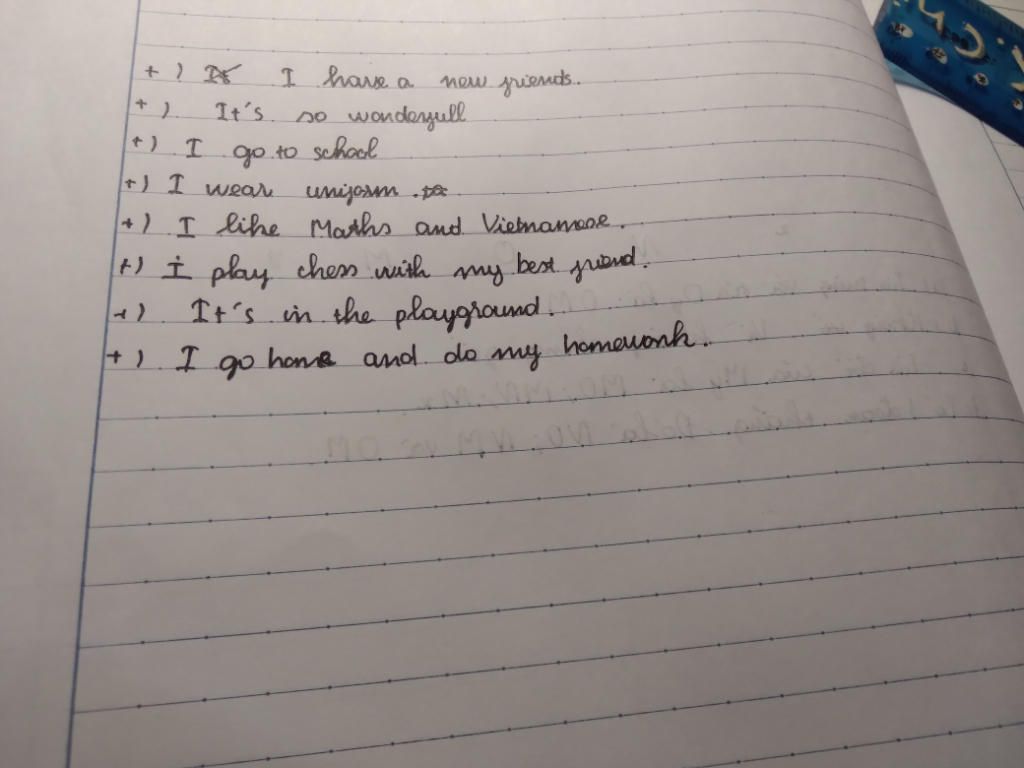 +) I have a new friends.
+) It's so wonderfull
+) I go to school
+) I wear uniform.
+) I like Maths and Vietnamese.
+) I play chess with my best friend.
+) It's in the playground.
+) I go home and do my homework.